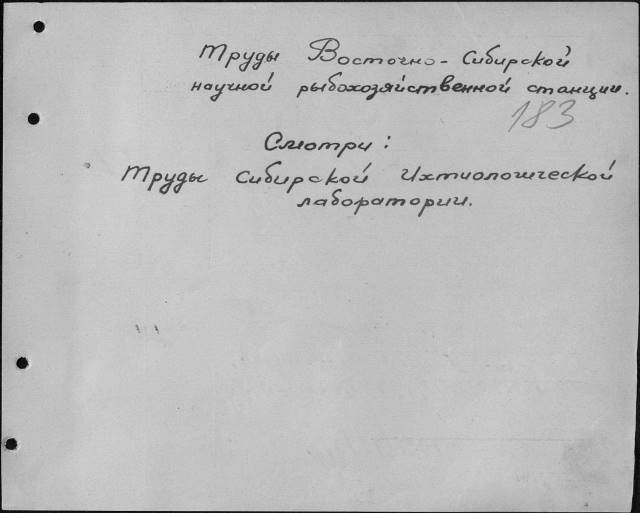 Труды Восточно-Сибирской
научной рыбохозяйственной станции.
183
Смотри:
Труды Сибирской Ихтиологической
лаборатории.